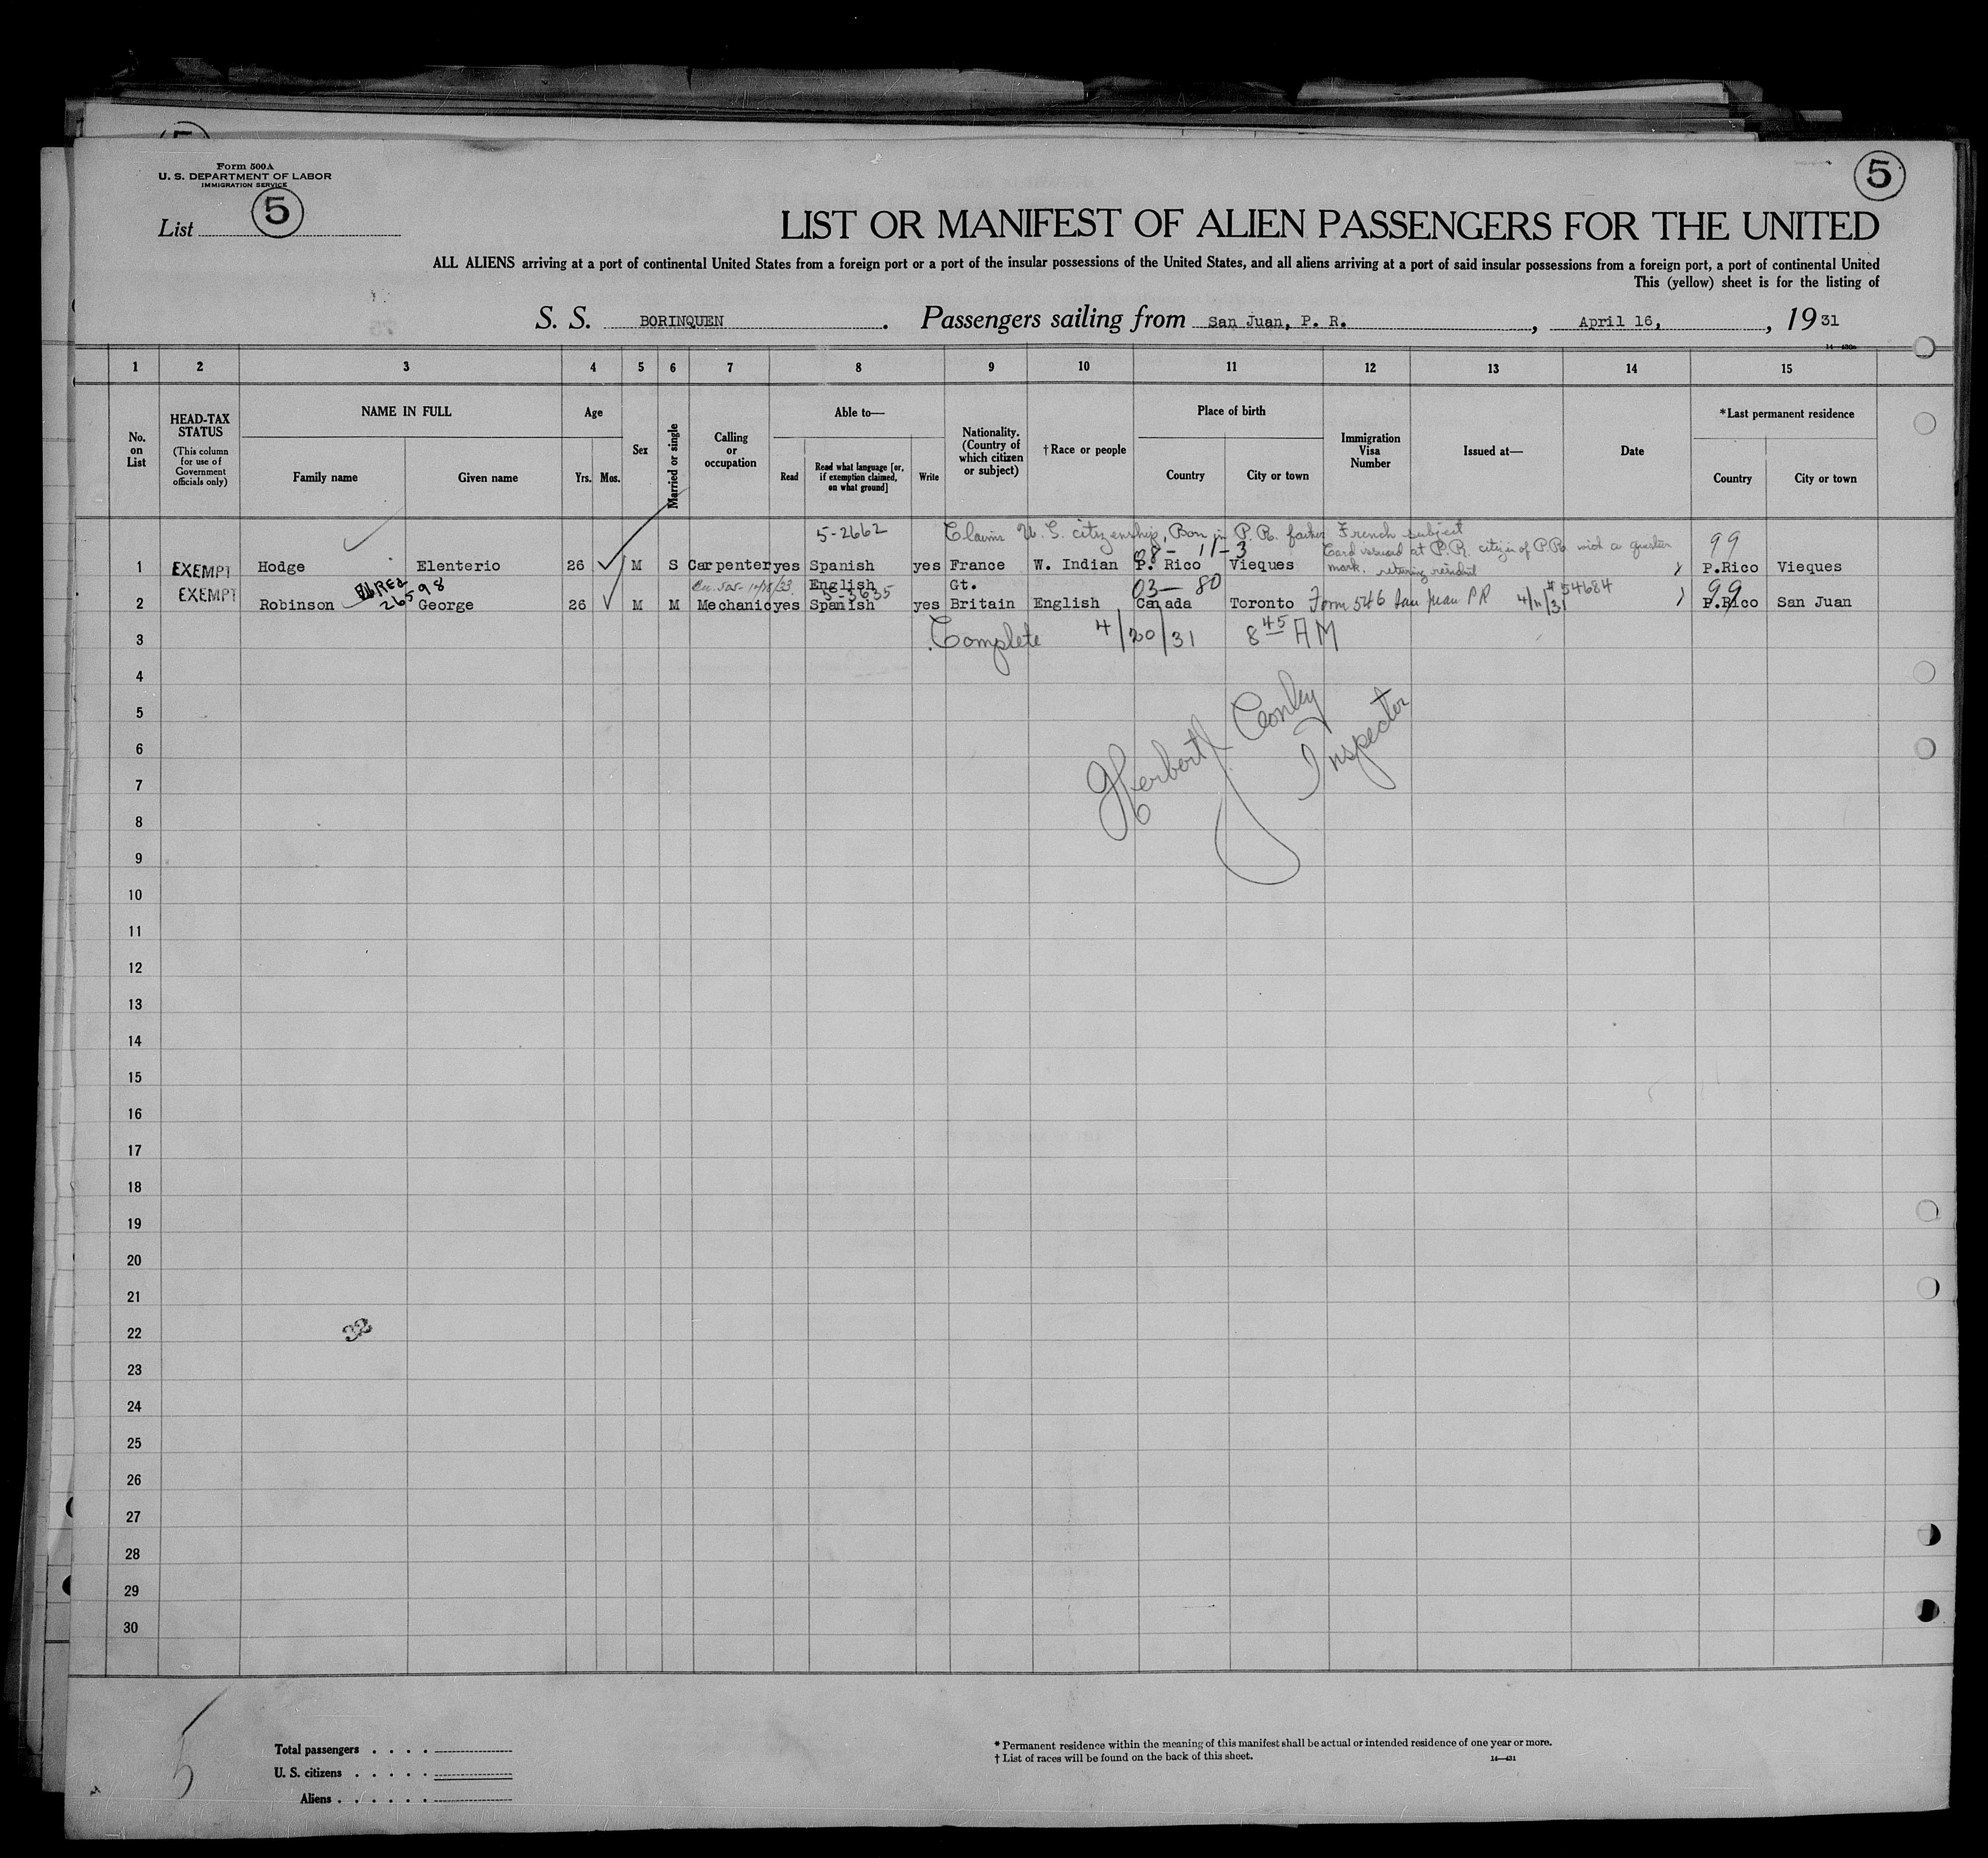 5
Form 500A
U. S. DEPARTMENT OF LABOR
IMMIGRATION SERVICE
List 5
5
LIST OR MANIFEST OF ALIEN PASSENGERS FOR THE UNITED
ALL ALIENS arriving at a port of continental United States from a foreign port or a port of the insular possessions of the United States, and all aliens arriving at a port of said insular possessions from a foreign port, a port of continental United
This (yellow) sheet is for the listing of
S. S. BORINQUEN. Passengers sailing from San Juan, P. R., April 16, , 1931
1 2 3 4 5 6 7 8 9 10 11 12 13 14 15
No. on List
HEAD-TAX STATUS (This column for use of Government officials only)
NAME IN FULL
Family name Given name
Age
Yrs. Mos.
Sex
Married or single
Calling or occupation
Able to—
Read Read what language [or, if exemption claimed, on what ground] Write
Nationality. (Country of which citizen or subject)
† Race or people
Place of birth
Country City or town
Immigration Visa Number
Issued at—
Date
*Last permanent residence
Country City or town
5-2662 Claims U. S. citizenship, Born in P. R. father French subject
08- 11-3 Card issued at P.R. citizen of P.R. with a question 99
1 EXEMPT Hodge Elenterio 26 M S Carpenter yes Spanish yes France W. Indian P. Rico Vieques mark. returning resident P.Rico Vieques
26598 10/18/33 English 5-3635 Gt. 03-80 #54684 99
2 EXEMPT Robinson George 26 M M Mechanic yes Spanish yes Britain English Canada Toronto Form 546 San Juan PR 4/11/31 P.Rico San Juan
3 Complete 4/20/31 8 45 AM
4
5
6
Herbert J. Conley
Inspector
7
8
9
10
11
12
13
14
15
16
17
18
19
20
21
22
23
24
25
26
27
28
29
30
5
Total passengers . . . .
U. S. citizens . . . . .
Aliens . . . . . .
* Permanent residence within the meaning of this manifest shall be actual or intended residence of one year or more.
† List of races will be found on the back of this sheet.
14—431